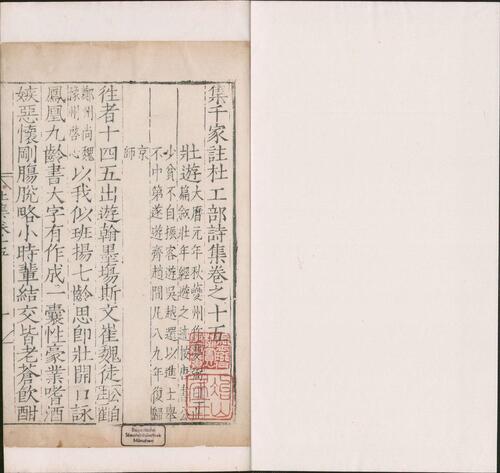 集千家註杜工部詩集卷之十五
壯遊 大曆元年秋夔州作
壯遊篇敘壯年經遊之
少貧不自振客遊吳越還以進士舉
不中第遂遊齊趙間凡八九年復歸
京
師
徃者十四五出遊翰墨塲斯文崔魏徒
鄭州尚
豫州啓心
魏
以我似班揚七齡思即壯開口詠
鳳凰九齡書大字有作成一囊性豪業嗜酒
嫉惡懷剛腸脫略小時輩結交皆老蒼飲酣
Bayerische
Staatsbibliothek
München